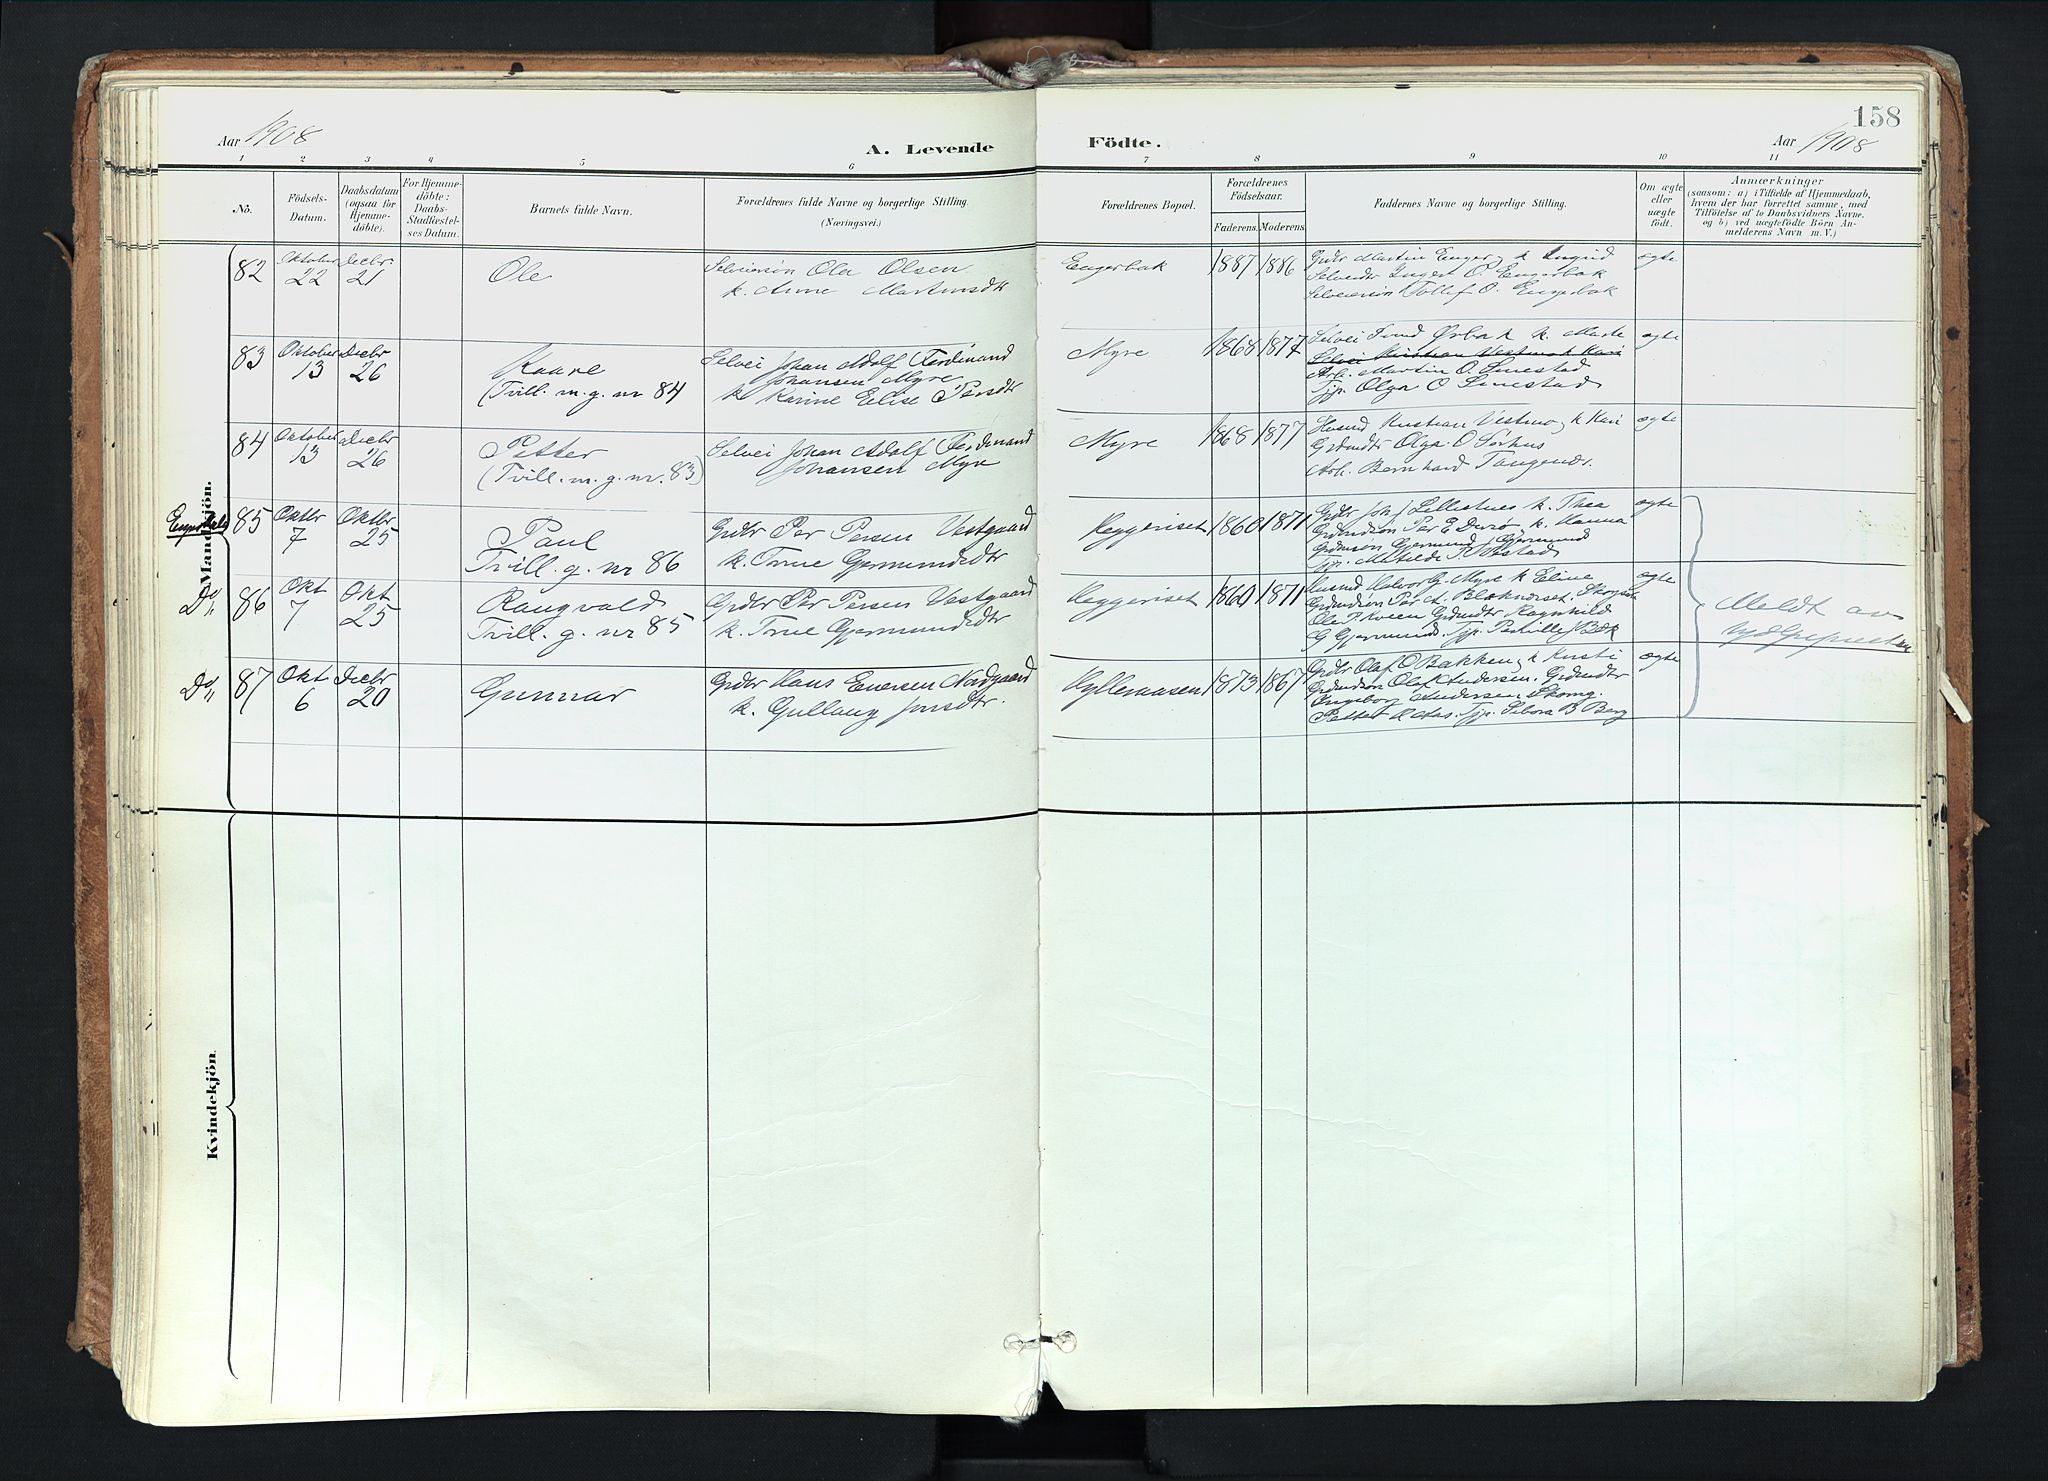 158
Aar 1908
A. Levende
Födte.
Aar 1908
1 2 3 4 5 6 7 8 9 10 11
No.
Födsels-
Datum.
Daabsdatum
(ogsaa for
Hjemme-
döbte).
For Hjemme-
döbte:
Daabs-
Stadfæstel-
ses Datum.
Barnets fulde Navn.
Forældrenes fulde Navne og borgerlige Stilling.
(Næringsvei.)
Forældrenes Bopæl.
Forældrenes
Födselsaar.
Faderens. Moderens.
Faddernes Navne og borgerlige Stilling.
Om ægte
eller
uægte
født.
Anmærkninger
(saasom: a) i Tilfælde af Hjemmedaab,
hvem der har forrettet samme, med
Tilföielse af to Daabsvidners Navne,
og b) ved uægtefødte Börn An-
melderens Navn m. V.)
Mandkjön.
82 Oktober 22 Decbr 21
Ole
Selveiersön Ola Olsen
k. Anne Martinsdtr
Engerbak 1887 1886
Grdbr Martin Enger, k Ingrid
Selveidtr Inger O. Engerbak
Selveiersön Tollef O. Engerbak
ægte
83 Oktober 13 Decbr 26
Kaare
(Tvill. m. g. nr 84
Selvei Johan Adolf Ferdinand
Johansen Myre
k Karine Elise Persdtr
Myre 1868 1877
Selvei k. Marte
Selvei Kristian Vestmo k Kari
Arb. Martin O.
Tjp. Olga O
ægte
84 Oktober 13 Decbr 26
Petter
(Tvill. m. g. nr. 83)
Selvei Johan Adolf Ferdinand
Johansen Myre
Myre 1868 1877
Husmd Kristian Vestmo, k Kari
Grdmdtr Olga O
Arb. Bernhard
ægte
85 Oktbr 7 Oktbr 25
Paul
Tvill. g. nr 86
Grdbr Per Persen Vestgaard
k. Trine Gjermundsdtr
Heggeriset 1860 1871
Grdbr k. Thea
Grdmdsön Per E k. Hanna
Grdmsön Gjermund Gjermund
Tjp. Matilde
ægte
Do 86 Okt 7 Okt 25
Raugvald
Tvill. g. nr 85
Grdbr Per Persen Vestgaard
k. Trine Gjermundsdtr
Heggeriset 1860 1871
Husmd Halvor G. Myre k Eline
Grdmdsön Per A.
Ole P. Grdmdtr Ragnhild
G Gjermunds. Tjp.
ægte
Meldt av
Do 87 Okt 6 Decbr 20
Gunnar
Grdbr Hans Enersen Nordgaard
k. Gullaug Jonsdtr.
Hylleraasen 1873 1867
Grdbr Olaf O Bakken, k Kirsti
Grdmdsön Olaf Andersen. Grdmdtr
Ingeborg Andersen
Petter H Aas. Tjp. B Berg
ægte
Kvindekjön.